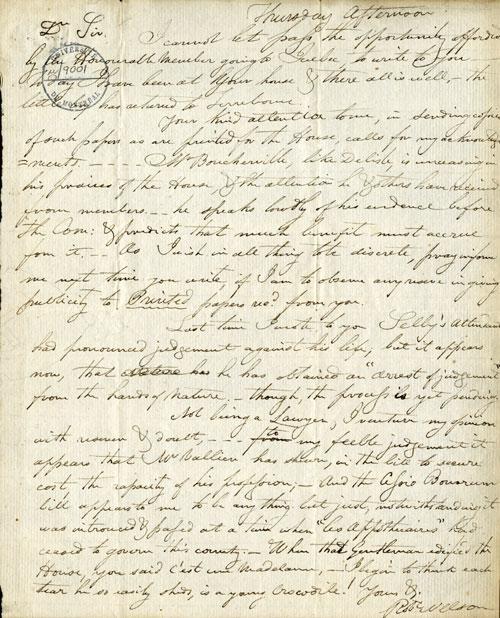 Thursday Afternoon
Dr Sir
I cannot let pass the opportunity afforded
by an Honourable Member going to Quebec, to write to you
To day I have been at your house & there all is well, - the
has returned to Terrebonne.
Your kind attention to me, in sending copies
of such papers as are printed for the House, calls for my
=ments. - - - - Mr Boucherville, like Delisle is unceasing in
his praises of the House, & the attention he & others have received
from members. - - he speaks loudly of his evidence before
the Com: & predicts that much benefit must accrue
from it. - - As I wish in all thing to be discrete, pray inform
me next time you write, if I am to observe any reserve in giving
publicity to Printed papers recd. from you.
Last time I wrote to you Selby's Attendants
had pronounced judgement against his life, but it appears
now, that he has obtained an "arrest of judgement"
from the hands of Nature, - though, the process is yet pending
Not being a Lawyer, I venture my opinion
with reason & doubt, - - to my feeble judgement it
appears that Mr Vallier has shewn, in the bill to secure
cost the rapacity of his profession; - And the Cessio Bonorum
bill appears to me to be any thing but just, notwithstanding it
was introduced & passed at a time when "les Apothicaires" had
ceased to govern this country. - When that Gentleman edified the
House, you said c'est une Madelaine, - I begin to think each
tear he so easily sheds, is a young Crocodile! Yours &c
Robt Nelson
UNIVERSITÉ
9001
DE MONTRÉAL